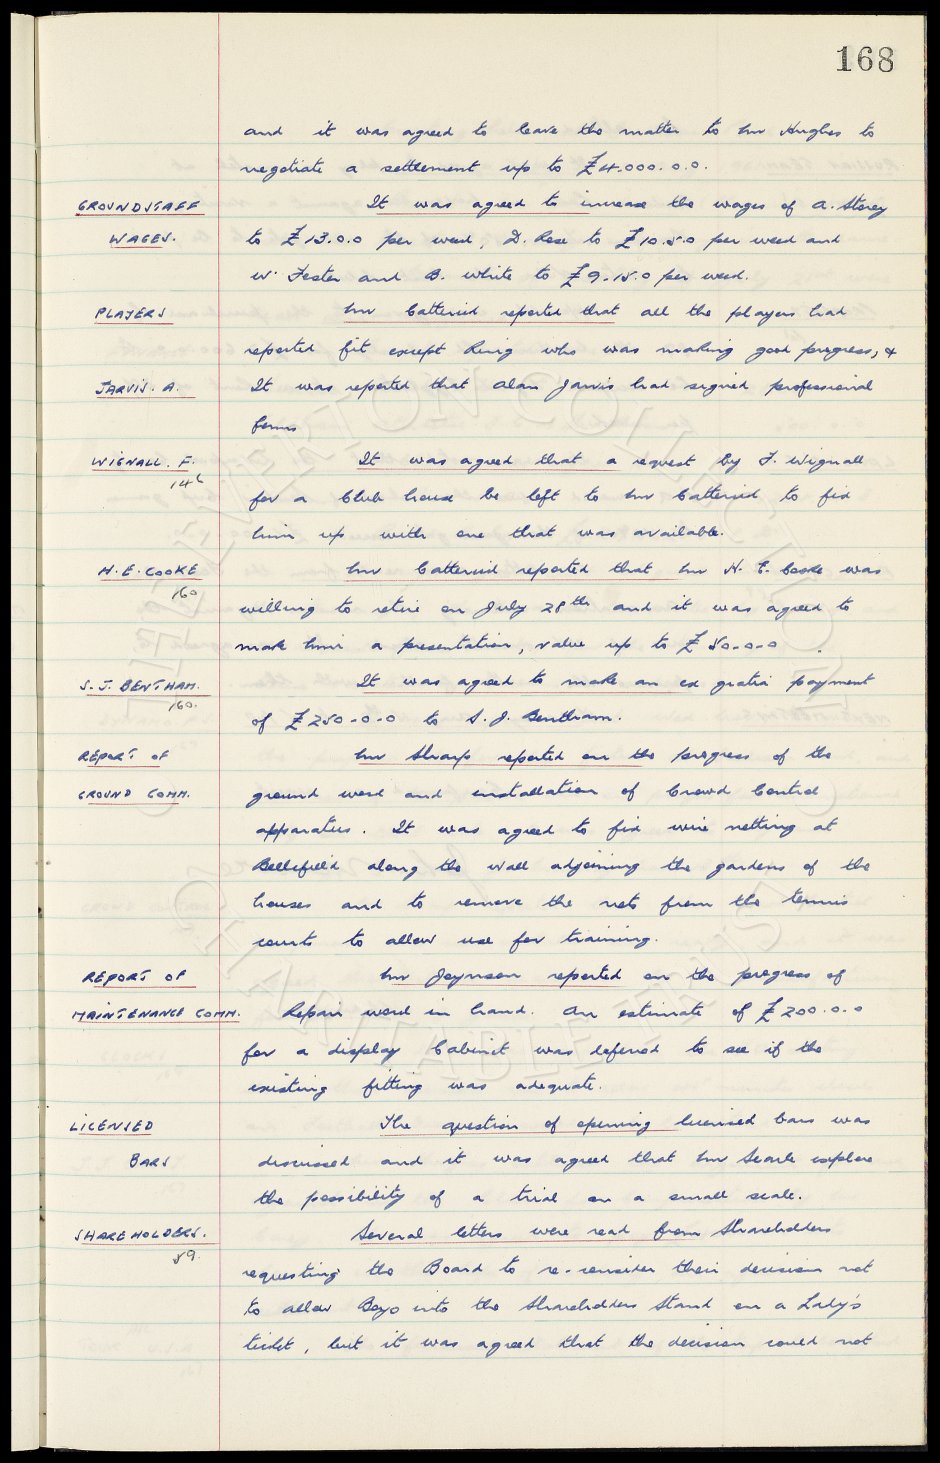 168
and it was agreed to leave the matter to Mr Hughes to
negotiate a settlement up to £4.000.0.0.
GROUNDSTAFF It was agreed to increase the wages of A. Storey
WAGES. to £13.0.0 per week, D. Rose to £10.5.0 per week and
W. Foster and B. White to £9.15.0 per week.
PLAYERS Mr Catterick reported that all the players had
reported fit except Ring who was making good progress, &
JARVIS. A. It was reported that Alan Jarvis had signed professional
forms
WIGNALL. F. It was agreed that a request by F. Wignall
146
for a Club house be left to Mr Catterick to fix
him up with one that was available.
H.E. COOKE Mr Catterick reported that Mr H. E. Cooke was
160
willing to retire on July 28th and it was agreed to
make him a presentation, value up to £50-0-0.
S.J. BENTHAM. It was agreed to make an ex gratia payment
160.
of £250-0-0 to S. J. Bentham.
REPORT OF Mr Sharp reported on the progress of the
GROUND COMM. ground work and installation of Crowd Control
apparatus. It was agreed to fix wire netting at
Bellefield along the wall adjoining the gardens of the
houses and to remove the nets from the tennis
courts to allow use for training.
REPORT OF Mr Joynson reported on the progress of
MAINTENANCE COMM. Repair work in hand. An estimate of £200.0.0
for a display Cabinet was deferred to see if the
existing fitting was adequate.
LICENSED The question of opening licensed bars was
BARS discussed and it was agreed that Mr Searle explore
the possibility of a trial on a small scale.
SHAREHOLDERS. Several letters were read from Shareholders
59.
requesting the Board to re-consider their decision not
to allow Boys into the Shareholders Stand on a Lady's
ticket, but it was agreed that the decision could not